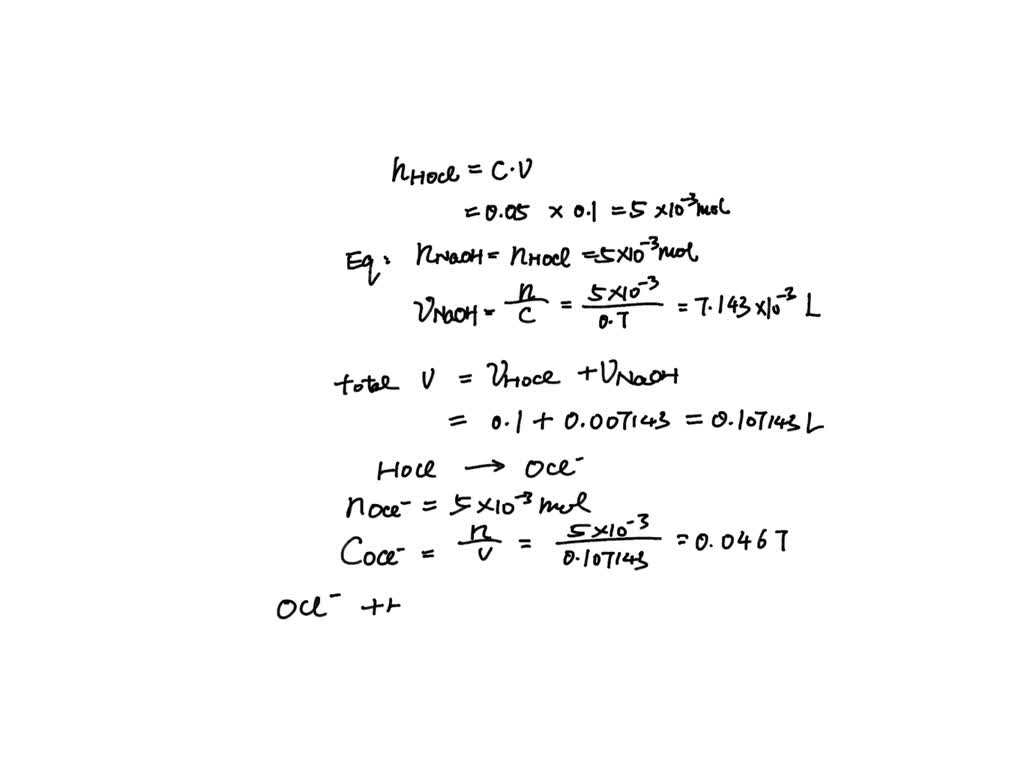 nHOCl = C·V
= 0.05 × 0.1 = 5 ×10⁻³ mol
Eq: nNaOH = nHOCl = 5×10⁻³ mol
VNaOH = n/C = 5×10⁻³/0.7 = 7.143 ×10⁻³ L
total V = VHOCl + VNaOH
= 0.1 + 0.007143 = 0.107143 L
HOCl → OCl⁻
nOCl⁻ = 5×10⁻³ mol
COCl⁻ = n/V = 5×10⁻³/0.107143 = 0.0467
OCl⁻ +